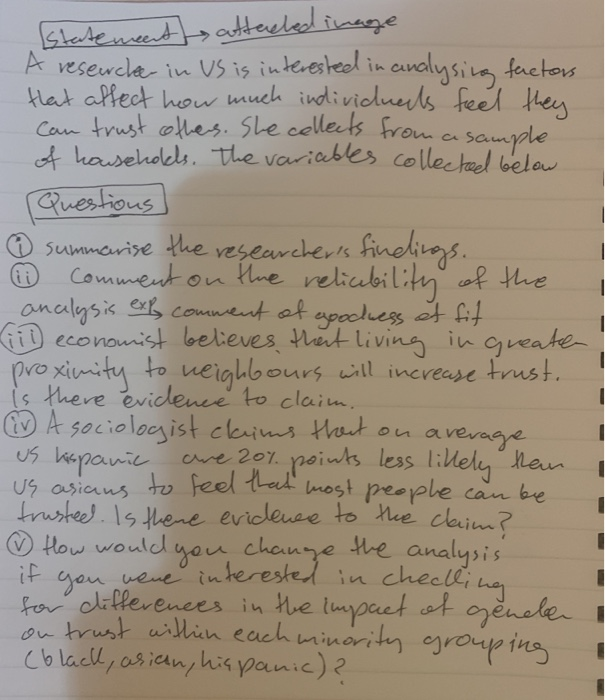 Statement → attached image
A researcher in US is interested in analysing factors
that affect how much individuals feel they
can trust others. She collects from a sample
of households. The variables collected below
Questions
(i) summarise the researcher's findings.
(ii) comment on the reliability of the
analysis exp comment of goodness of fit
(iii) economist believes that living in greater
proximity to neighbours will increase trust.
Is there evidence to claim.
(iv) A sociologist claims that on average
US hispanic are 20% points less likely than
US asians to feel that most people can be
trusted. Is there evidence to the claim?
(v) How would you change the analysis
if you were interested in checking
for differences in the impact of gender
on trust within each minority grouping
(black, asian, hispanic)?